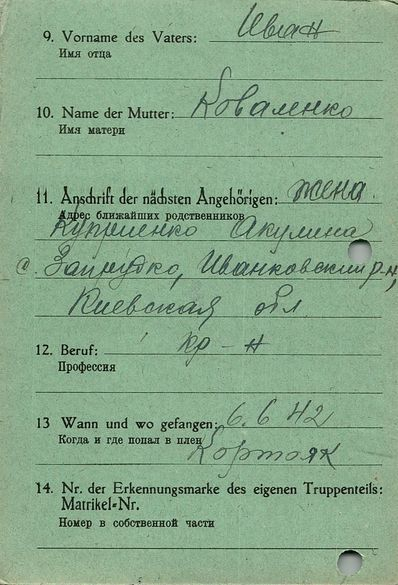 9. Vorname des Vaters: Иван
Имя отца
10. Name der Mutter: Коваленко
Имя матери
11. Anschrift der nächsten Angehörigen: жена
Адрес ближайших родственников
Куприенко Акулина
с. Запрудко, Иванковский р-н,
Киевская обл
12. Beruf: кр-н
Профессия
13 Wann und wo gefangen: 6.6 42
Когда и где попал в плен
Кортояк
14. Nr. der Erkennungsmarke des eigenen Truppenteils:
Matrikel=Nr.
Номер в собственной части